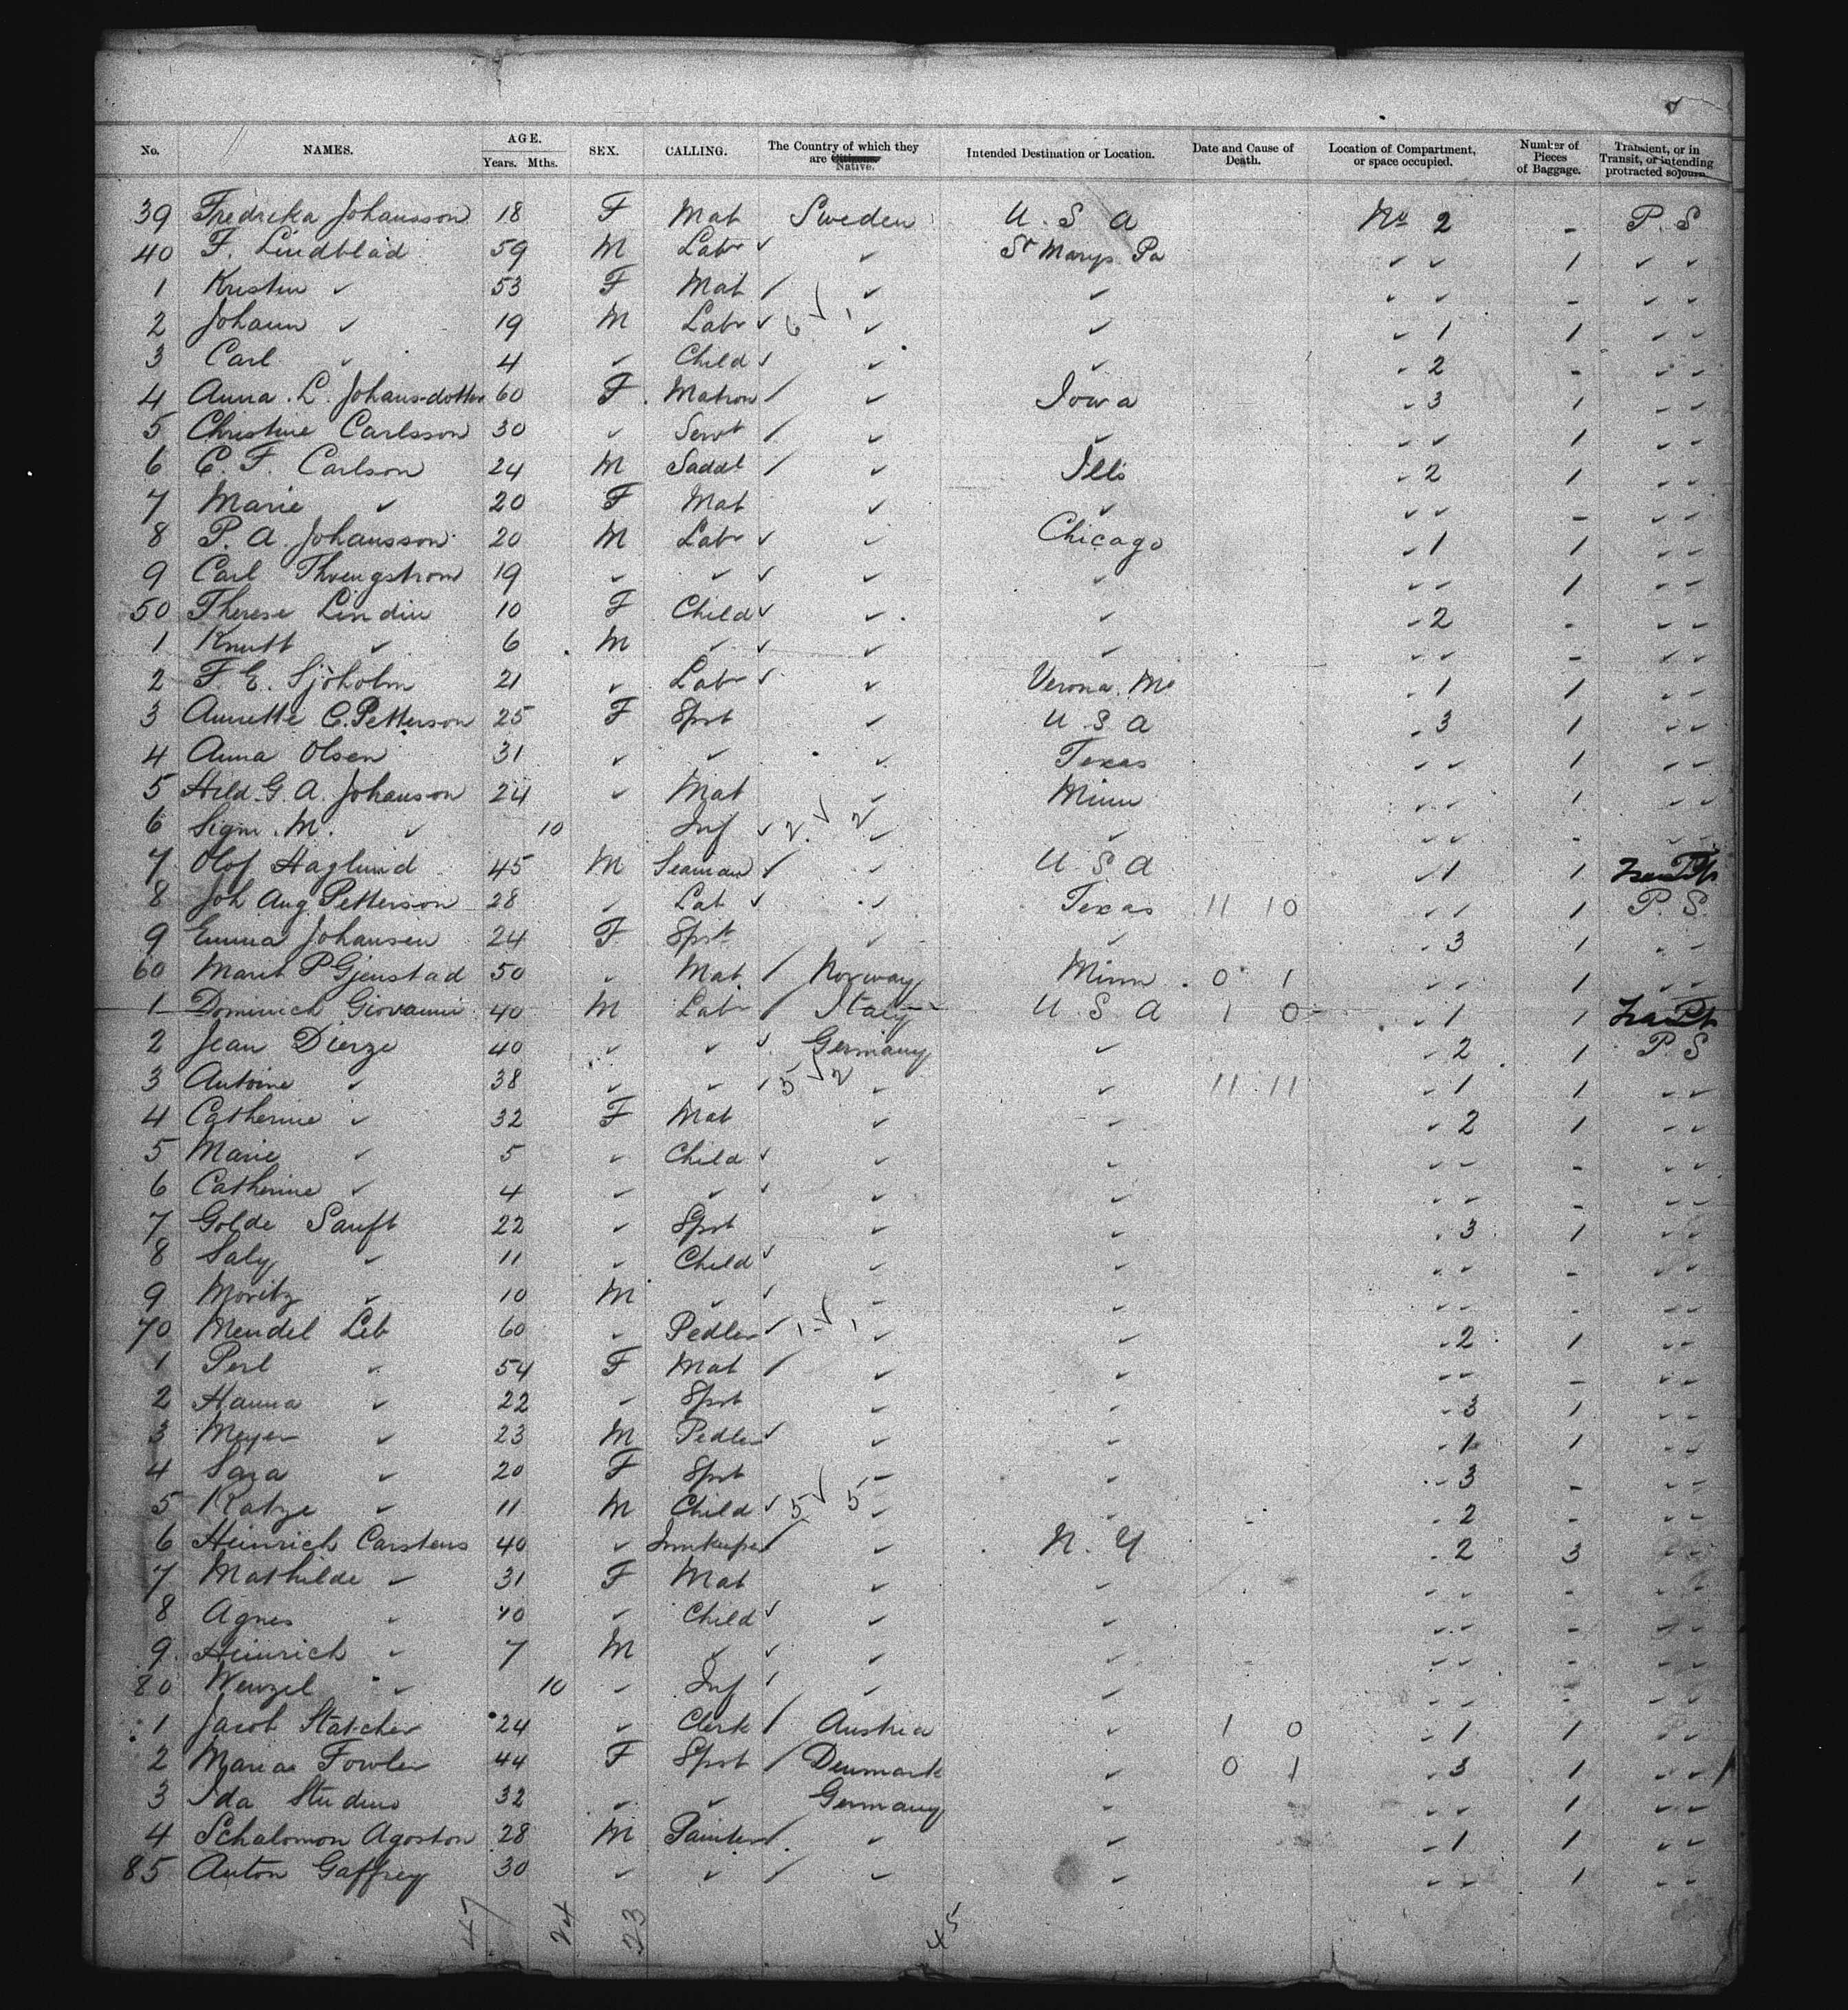 No. NAMES. AGE. Years. Mths. SEX. CALLING. The Country of which they are Citizens. Native. Intended Destination or Location. Date and Cause of Death. Location of Compartment, or space occupied. Number of Pieces of Baggage. Transient, or in Transit, or intending protracted sojourn.
39 Fredrika Johansson 18 F Mat Sweden U. S A No 2 - P. S
40 F. Lindblad 59 M Labr ✓ ✓ St Marys Pa ✓ ✓ 1 ✓ ✓
1 Kristin ✓ 53 F Mat / ✓ ✓ ✓ ✓ - ✓ ✓
2 Johann ✓ 19 M Labr ✓ 6 ✓ 1 ✓ ✓ ✓ 1 1 ✓ ✓
3 Carl ✓ 4 ✓ Child ✓ ✓ ✓ ✓ 2 - ✓ ✓
4 Anna. L. Johans-dotter 60 F. Matron / ✓ Iowa ✓ 3 1 ✓ ✓
5 Christine Carlsson 30 ✓ Servt / ✓ ✓ ✓ ✓ 1 ✓ ✓
6 C. F. Carlson 24 M Saddl / ✓ Ills ✓ 2 1 ✓ ✓
7 Marie ✓ 20 F Mat ✓ ✓ ✓ ✓ - ✓ ✓
8 P. A. Johansson 20 M Labr ✓ ✓ Chicago ✓ 1 1 ✓ ✓
9 Carl Thvengstrom 19 ✓ ✓ ✓ ✓ ✓ ✓ ✓ 1 ✓ ✓
50 Therese Lindin 10 F Child ✓ ✓ ✓ ✓ 2 - ✓ ✓
1 Knutt ✓ 6 M ✓ ✓ ✓ ✓ ✓ ✓ - ✓ ✓
2 F. E. Sjöholm 21 ✓ Labr ✓ ✓ Verona. Mo ✓ 1 1 ✓ ✓
3 Annette C. Petterson 25 F Spst ✓ U. S. A ✓ 3 1 ✓ ✓
4 Anna Olsen 31 ✓ ✓ ✓ Texas ✓ ✓ 1 ✓ ✓
5 Hild. G. A. Johanson 24 ✓ Mat ✓ Minn ✓ ✓ 1 ✓ ✓
6 Sign. M. ✓ 10 Inf ✓ 2 ✓ 2 ✓ ✓ ✓ ✓ - ✓ ✓
7 Olof Haglund 45 M Seaman / ✓ U. S. A ✓ 1 1
8 Joh Aug Petterson 28 ✓ Lab ✓ ✓ Texas 11 10 ✓ ✓ 1 P. S.
9 Emma Johansen 24 F Spst ✓ ✓ ✓ 3 1 ✓ ✓
60 Marit P Gjenstad 50 ✓ Mat / Norway Minn 0 1 ✓ ✓ 1 ✓ ✓
1 Dominich Giovanni 40 M Labr / Italy U. S. A 1 0 ✓ 1 1
2 Jean Dierze 40 ✓ ✓ ✓ Germany ✓ ✓ 2 1 P. S
3 Antoine ✓ 38 ✓ ✓ ✓ 5 ✓ 2 ✓ ✓ 11 11 ✓ 1 1 ✓ ✓
4 Catherine ✓ 32 F Mat ✓ ✓ ✓ 2 1 ✓ ✓
5 Marie ✓ 5 ✓ Child ✓ ✓ ✓ ✓ ✓ - ✓ ✓
6 Catherine ✓ 4 ✓ ✓ ✓ ✓ ✓ ✓ ✓ - ✓ ✓
7 Golde Sanft 22 ✓ Spst ✓ ✓ ✓ 3 1 ✓ ✓
8 Saly ✓ 11 ✓ Child ✓ ✓ ✓ ✓ ✓ - ✓ ✓
9 Moritz ✓ 10 M ✓ ✓ ✓ ✓ ✓ ✓ - ✓ ✓
70 Mendel Leb 60 ✓ Pedler / 1 ✓ 1 ✓ ✓ ✓ 2 1 ✓ ✓
1 Perl ✓ 54 F Mat / ✓ ✓ ✓ ✓ - ✓ ✓
2 Hanna ✓ 22 ✓ Spst ✓ ✓ ✓ 3 1 ✓ ✓
3 Meyer ✓ 23 M Pedler ✓ ✓ ✓ ✓ 1 1 ✓ ✓
4 Sara ✓ 20 F Spst ✓ ✓ ✓ 3 - ✓ ✓
5 Katze ✓ 11 M Child ✓ 5 ✓ 5 ✓ ✓ ✓ 2 - ✓ ✓
6 Heinrich Carstens 40 ✓ Innkeeper / ✓ N. Y ✓ 2 3 ✓ ✓
7 Mathilde ✓ 31 F Mat ✓ ✓ ✓ ✓ - ✓ ✓
8 Agnes ✓ 10 ✓ Child ✓ ✓ ✓ ✓ ✓ - ✓ ✓
9 Heinrich ✓ 7 M ✓ ✓ ✓ ✓ ✓ ✓ - ✓ ✓
80 Wenzel ✓ 10 ✓ Inf ✓ ✓ ✓ ✓ ✓ - ✓ ✓
1 Jacob Statcher 24 ✓ Clerk / Austria ✓ 1 0 ✓ 1 1 ✓ ✓
2 Maria Fowler 44 F Spst / Denmark ✓ 0 1 ✓ 3 1 ✓ ✓
3 Ida Studino 32 ✓ ✓ Germany ✓ ✓ ✓ 1 ✓ ✓
4 Schalomon Agoston 28 M Painter / ✓ ✓ ✓ 1 1 ✓ ✓
85 Anton Gaffrey 30 ✓ ✓ / ✓ ✓ ✓ ✓ 1 ✓ ✓
47 24 23 45